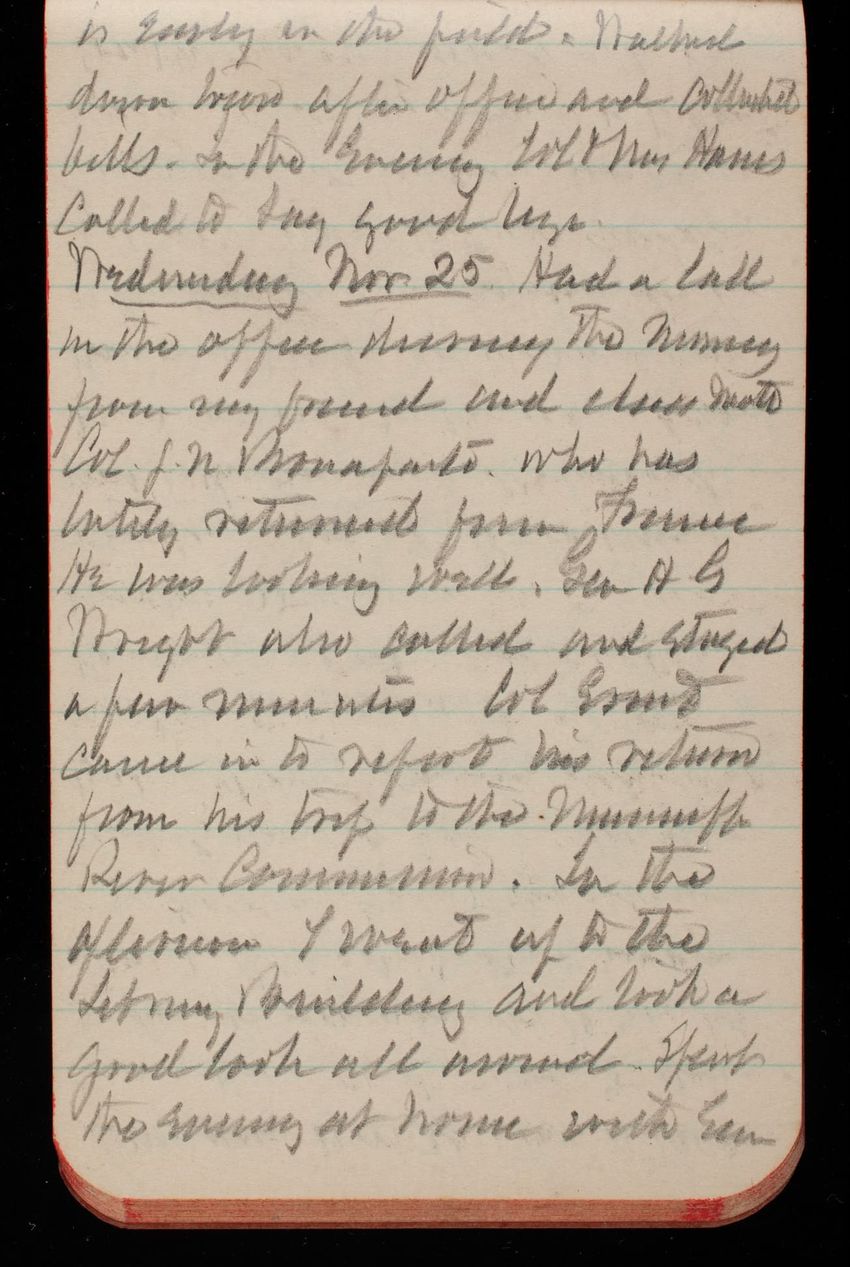 is early in the field. Walked
down town after office and collected
bills. In the Evening Col & Mrs Hains
Called to Say good bye.
Wednesday Nov 25. Had a call
in the office during the Morning
from my friend and class mate
Col. J. N Bonaparte. who has
lately returned from France
He was looking well. Gen H G
Wright also called and stayed
a few minutes Col Ernst
came in to report his return
from his trip to the Mississippi
River Commission. In the
afternoon I went up to the
Library Building and took a
good look all around. Spent
the Evening at home with Gen